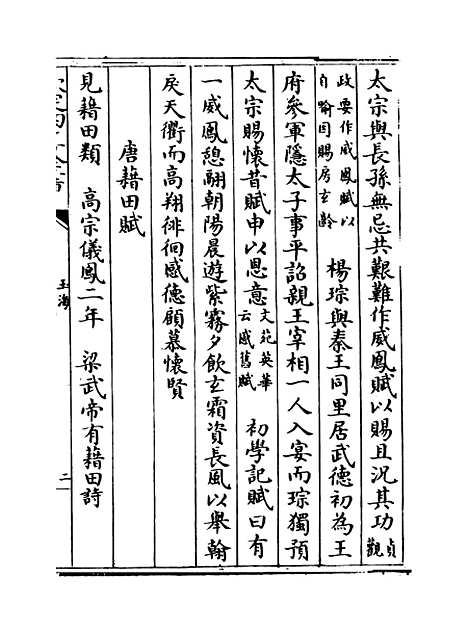 太宗與長孫無忌共艱難作威鳳賦以賜且況其功貞觀
政要作威鳳賦以
自喻因賜房玄齡
楊琮與秦王同里居武德初為王
府參軍隱太子事平詔親王宰相一人入宴而琮獨預
太宗賜懷昔賦申以恩意文苑英華
云感舊賦
初學記賦曰有
一威鳳憩翮朝陽晨遊紫霧夕飲玄霜資長風以舉翰
戾天衢而高翔徘徊感德顧慕懷賢
唐藉田賦
見藉田類 高宗儀鳳二年 梁武帝有藉田詩
玉海
二